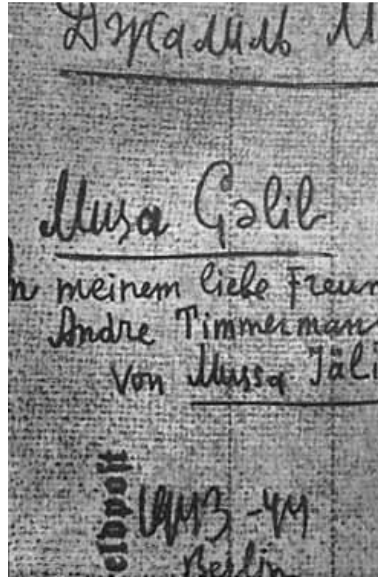 Джалиль М
Musa Çəlil
n meinem liebe Freun
Andre Timmerman
von Mussa Jäli
eldpost
1943-44
Berlin